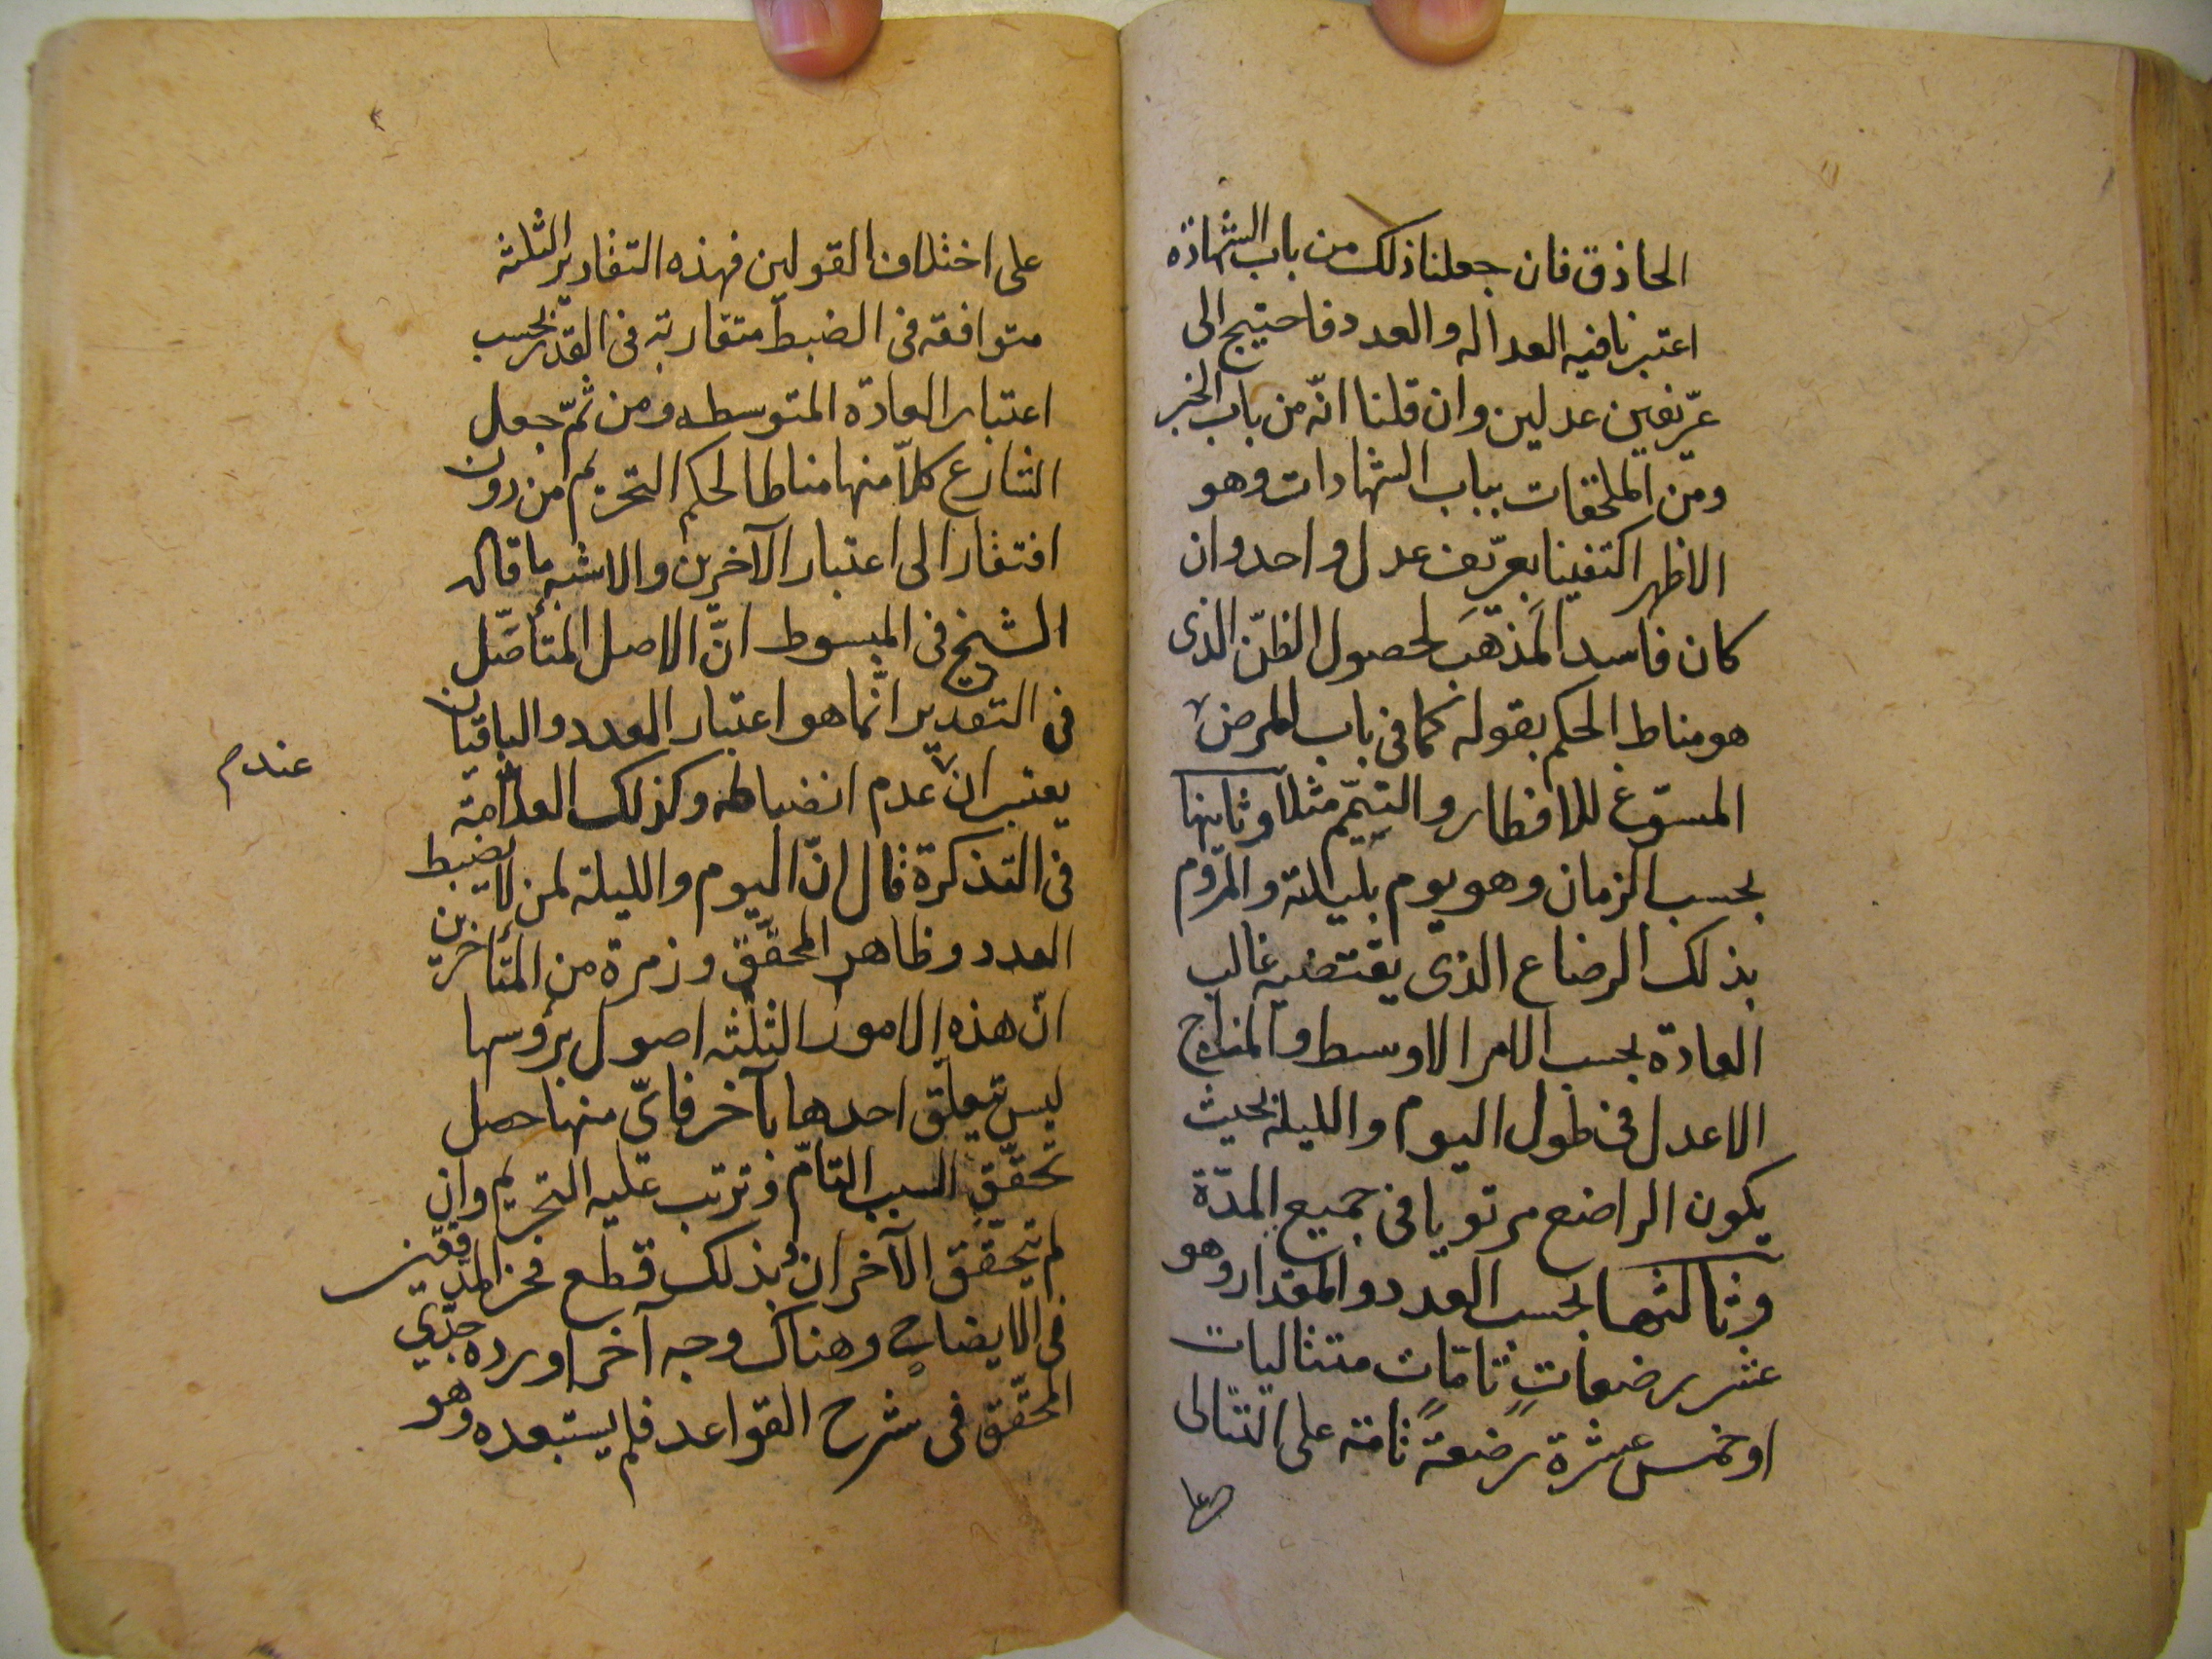 الحاذق فان جعلنا ذلك من باب الشهادة
اعتبرنا فيه العدالة والعدد فاحتيج الى
عرّيفين عدلين وان قلنا انّه من باب الخبر
ومن الملحقات بباب الشهادات وهو
الاظهر اكتفينا بعرّيف عدل واحد وان
كان فاسد المذهب لحصول الظنّ الذى
هو مناط الحكم بقوله كما فى باب المرض
المسوّغ للافطار والتيمّم مثلا وثانيها
بحسب الزمان وهو يوم بليلة والمروم
بذلك الرضاع الذى يقتضيه غالب
العادة بحسب الامر الاوسط والمزاج
الاعدل فى طول اليوم والليلة بحيث
يكون الراضع مرتويا فى جميع المدّة
وثالثها بحسب العدد والمقدار وهو
عشر رضعات تامّات متتاليات
او خمس عشرة رضعة تامة على التتالى
على اختلاف القولين فهذه التقادير الثلثة
متوافقه فى الضبط متقاربة فى القدر بحسب
اعتبار العادّة المتوسطه ومن ثمّ جعل
الشارع كلاّ منها مناطا لحكم التحريم من دون
افتقار الى اعتبار الآخرين والاشبه ما قاله
الشيخ فى المبسوط انّ الاصل المتأصّل
فى التقدير انّما هو اعتبار العدد والباقيان
يعتبران عدم انضباطه وكذلك العلامة
عند م
فى التذكرة قال انّ اليوم والليلة لمن لا يضبط
العدد وظاهر المحقّق وزمرة من المتأخرين
انّ هذه الامور الثلثه اصول برؤسها
ليس تعلق احدها بآخر فاىّ منها حصل
تحقّق السبب التامّ وترتب عليه التحريم وان
لم يتحقّق الآخران وبذلك قطع فخر المدققين
فى الايضاح وهناك وجه آخر اورده جدّى
المحقّق فى شرح القواعد فلم يستبعده وهو